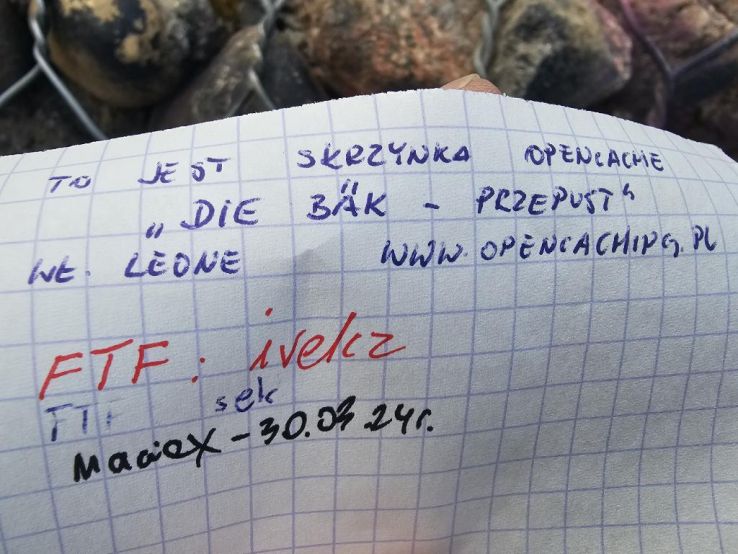 TO JEST SKRZYNKA OPENCACHE
„DIE BÄK - PRZEPUST"
WŁ. LEONE WWW.OPENCACHING.PL
FTF: ivekz
FTF sek
Maciex - 30.03.24r.